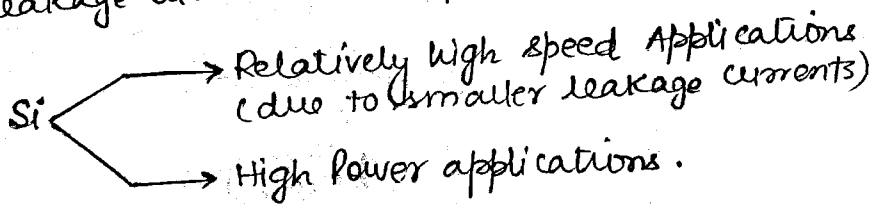 leakage
Si → Relatively high speed Applications
(due to smaller leakage currents)
→ High Power applications.